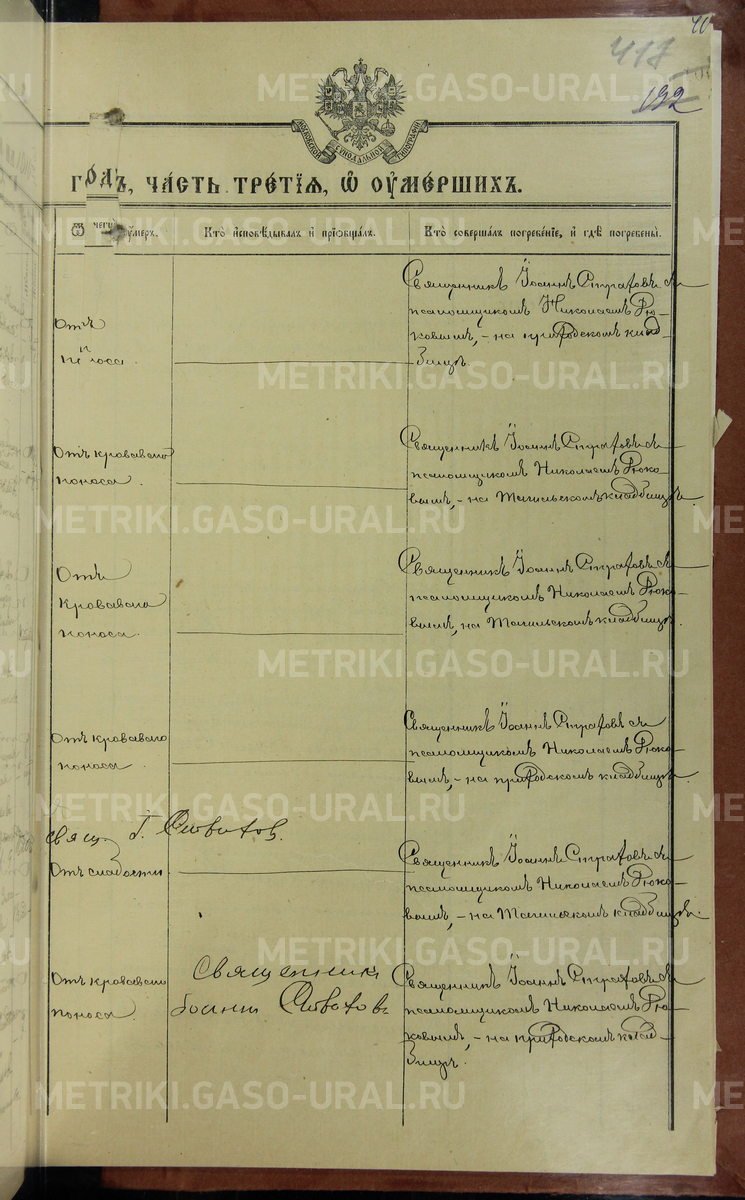 40
417
132
МОСКОВСКОЙ СѴНОДАЛЬНОЙ ТИПОГРАФІИ
го́дъ, ча́сть тре́тїѧ, ѡ҆ ᲂу҆ме́ршихъ.
Ѿ чегѡ̀ ᲂу҆́меръ.
Кто̀ и҆сповѣ́дывалъ и҆ прїѡбща́лъ.
Кто̀ соверша́лъ погребе́нїе, и҆ гдѣ̀ погребены̀.
Отъ
поноса.
Священникъ Іоаннъ Стратовъ съ
псаломщикомъ Николаемъ Рю-
ковымъ, - на приходскомъ клад-
бищѣ.
Отъ кроваваго
поноса.
Священникъ Іоаннъ Стратовъ съ
псаломщикомъ Николаемъ Рюко-
вымъ, - на кладбищѣ.
Отъ
Кроваваго
поноса.
Священникъ Іоаннъ Стратовъ съ
псаломщикомъ Николаемъ Рюко-
вымъ, на кладбищѣ.
Отъ кроваваго
поноса.
Священникъ Іоаннъ Стратовъ съ
псаломщикомъ Николаемъ Рюко-
вымъ, - на приходскомъ кладбищѣ.
Свящ.
Отъ слабости.
Священникъ Іоаннъ Стратовъ съ
псаломщикомъ Николаемъ Рюко-
вымъ, - на кладбищѣ.
Отъ кроваваго
поноса.
Священникъ
Іоаннъ
Священникъ Іоаннъ Стратовъ съ
псаломщикомъ Николаемъ Рю-
ковымъ, - на приходскомъ клад-
бищѣ.
METRIKI.GASO-URAL.RU